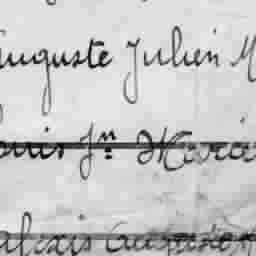 Auguste Julien M
Louis Jn Marie
Alexis Auguste